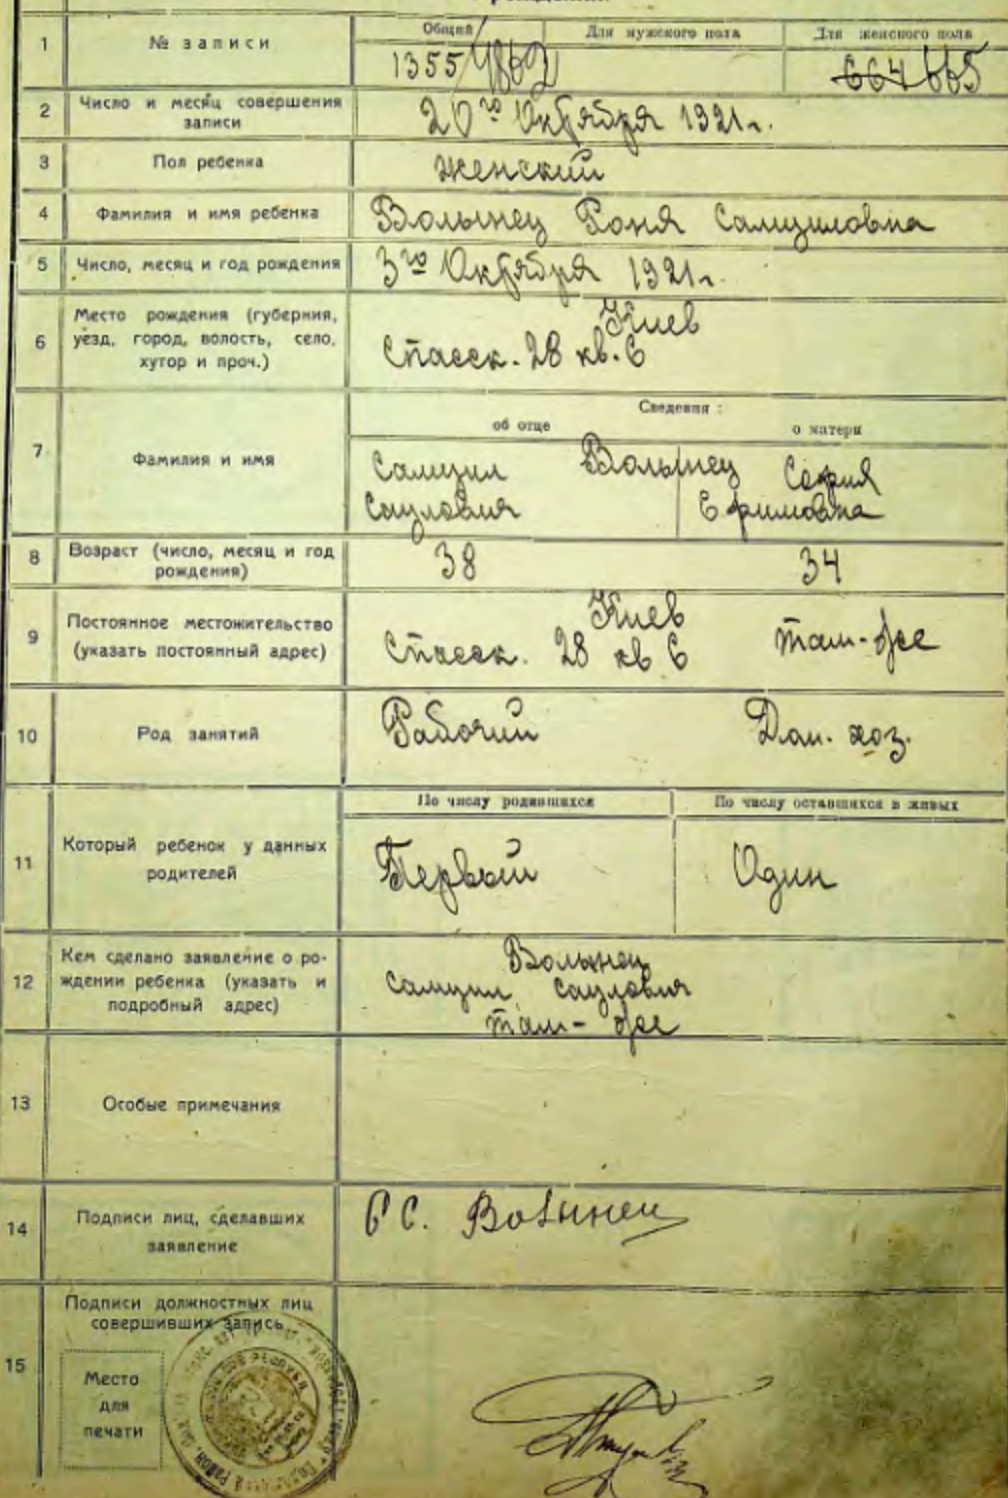 1 № записи Общий Для мужского пола Для женского пола
1355/1862 664 665
2 Число и месяц совершения записи
20го Октября 1921г.
3 Пол ребенка Женский
4 Фамилия и имя ребенка Волынец Роня Самуиловна
5 Число, месяц и год рождения 3го Октября 1921г.
6 Место рождения (губерния,
уезд, город, волость, село,
хутор и проч.)
Киев
Спасск. 28 кв. 6
Сведения:
об отце о матери
7 Фамилия и имя
Самуил Волынец София
Саулович Ефимовна
8 Возраст (число, месяц и год
рождения)
38 34
9 Постоянное местожительство
(указать постоянный адрес)
Киев
Спасск. 28 кв 6 там-же
10 Род занятий Рабочий Дом. хоз.
По числу родившихся По числу оставшихся в живых
11 Который ребенок у данных
родителей
Первый Один
12 Кем сделано заявление о ро-
ждении ребенка (указать и
подробный адрес)
Волынец
Самуил Саулович
там-же
13 Особые примечания
14 Подписи лиц, сделавших
заявление
С. Волынец
15 Подписи должностных лиц
совершивших запись
Место
для
печати